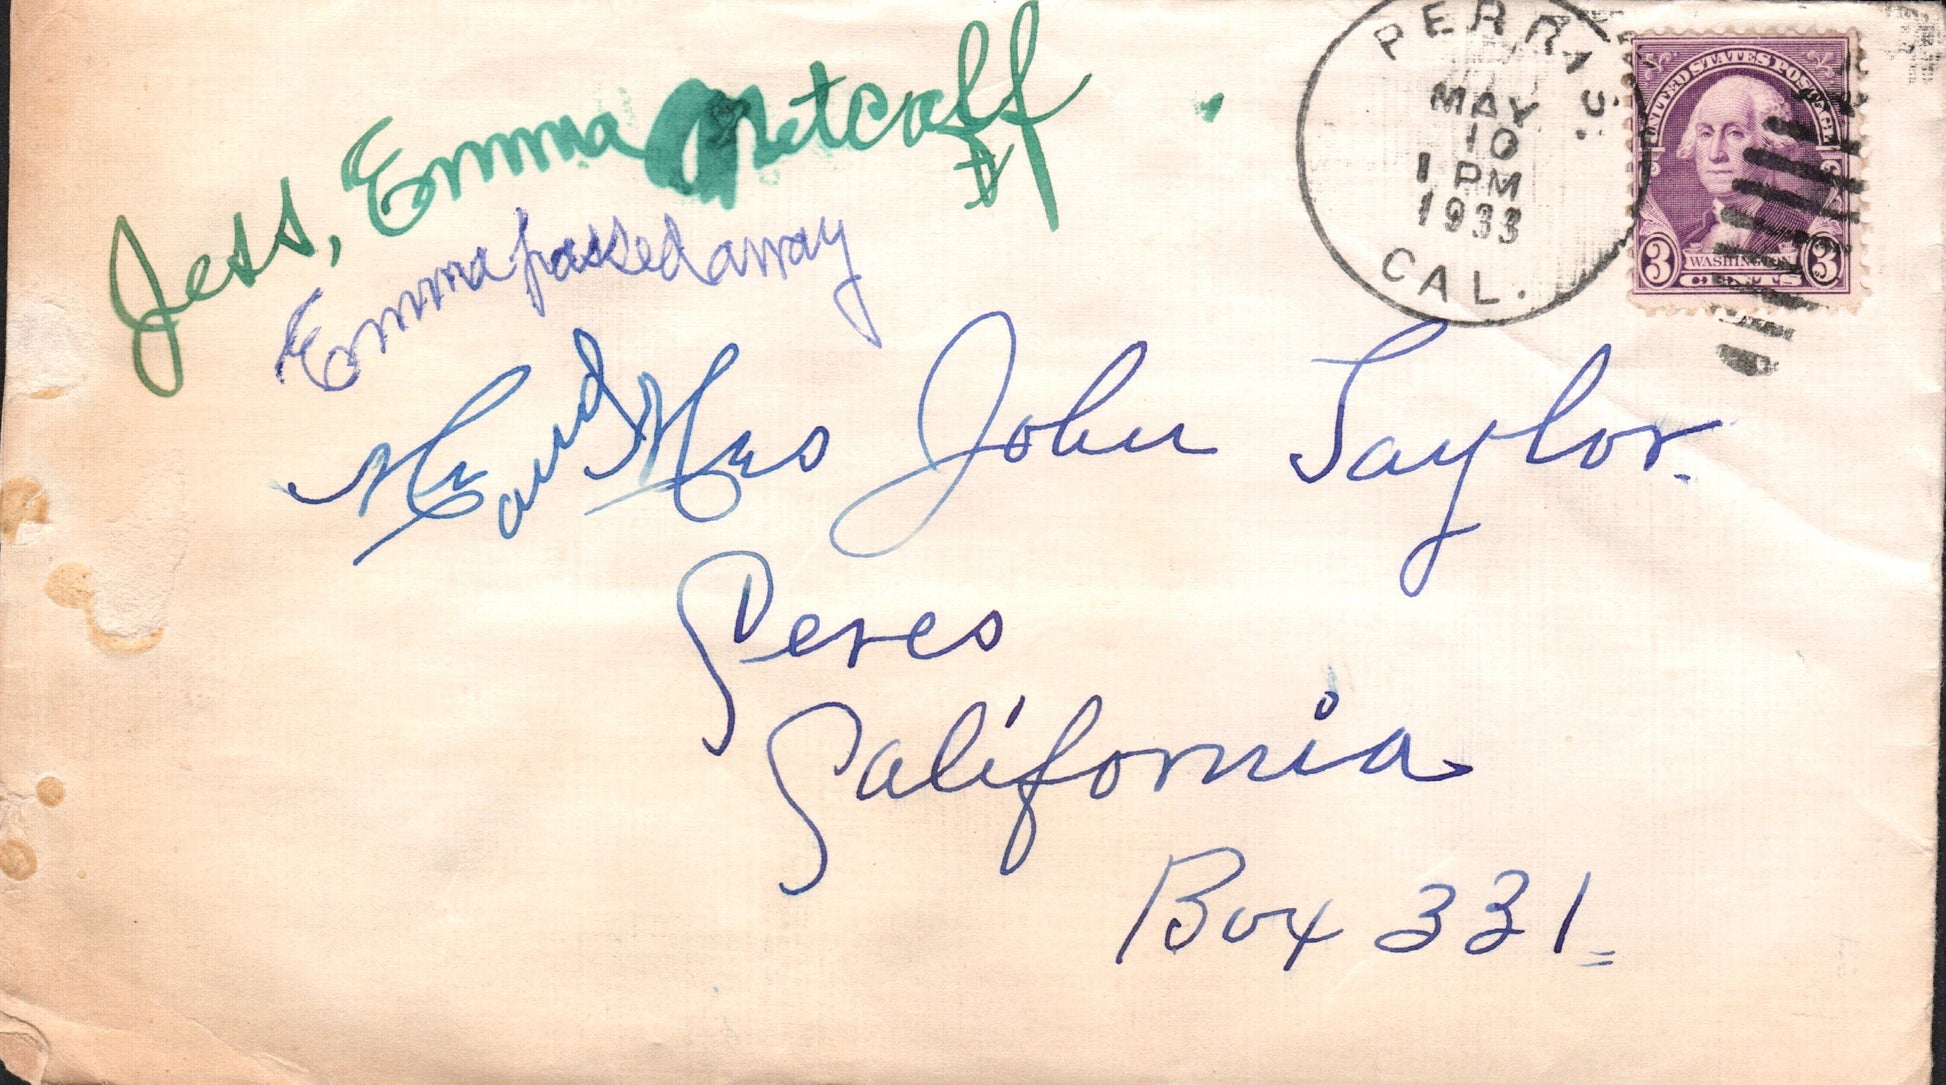 Jess, Emma Metcalf
Emma passed away
PERRIS.
MAY
10
1 PM
1933
CAL.
UNITED STATES POSTAGE
3 WASHINGTON 3
CENTS
Mr and Mrs John Taylor.
Peres
California
Box 331